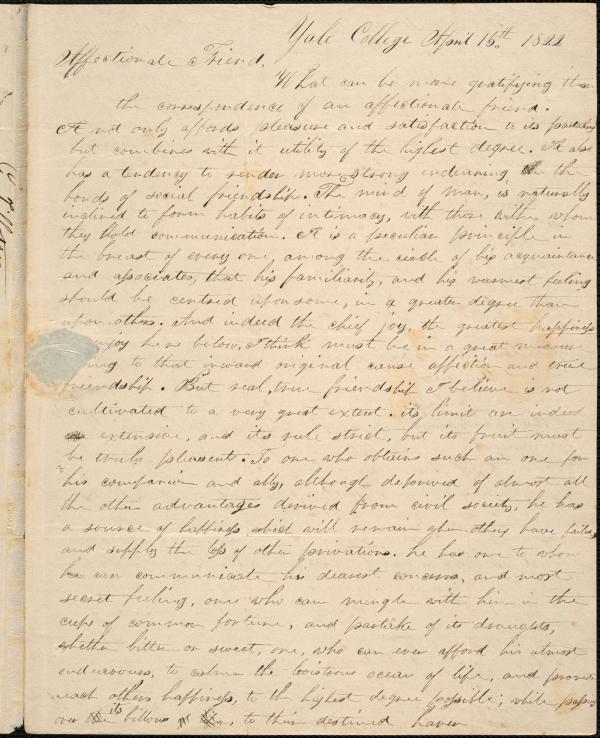 Yale College April 15th 1822
Affectionate Friend,
What can be more gratifying than
the correspondence of an affectionate friend.
It not only affords pleasure and satisfaction to its partakers
but combines with it utility of the highest degree. It also
has a tendency to render more strong endearing the
bonds of social friendship. The mind of man, is naturally
inclined to form habits of intimacy, with those with whom
they hold communication. It is a peculiar principle in
the breast of every one, among the circle of his acquaintance
and associates, that his familiarity, and his warmest feeling
should be centred upon some, in a greater degree than
upon others. And indeed the chief joy, the greatest happiness
enjoy here below, I think must be in a great measure
to that inward original cause affection and true
friendship. But real, true friendship I believe is not
cultivated to a very great extent. its limits are indeed
extensive, and its rule strict, but its fruit must
be truly pleasent. To one who obtains such an one for
his companion and ally, although deprived of almost all
the other advantages derived from civil society, he has
a source of happiness which will remain when others have failed
and supply the loss of other privations. he has one to whom
he can communicate his dearest concerns, and most
secret feeling, one who can mingle with him in the
cup of common fortune, and partake of its draughts,
whether bitter or sweet, one, who can ever afford his utmost
endeavours, to calm the boistrous ocean of life, and promote
each others happiness, to the highest degree possible; while passing
over its billows to their destined haven